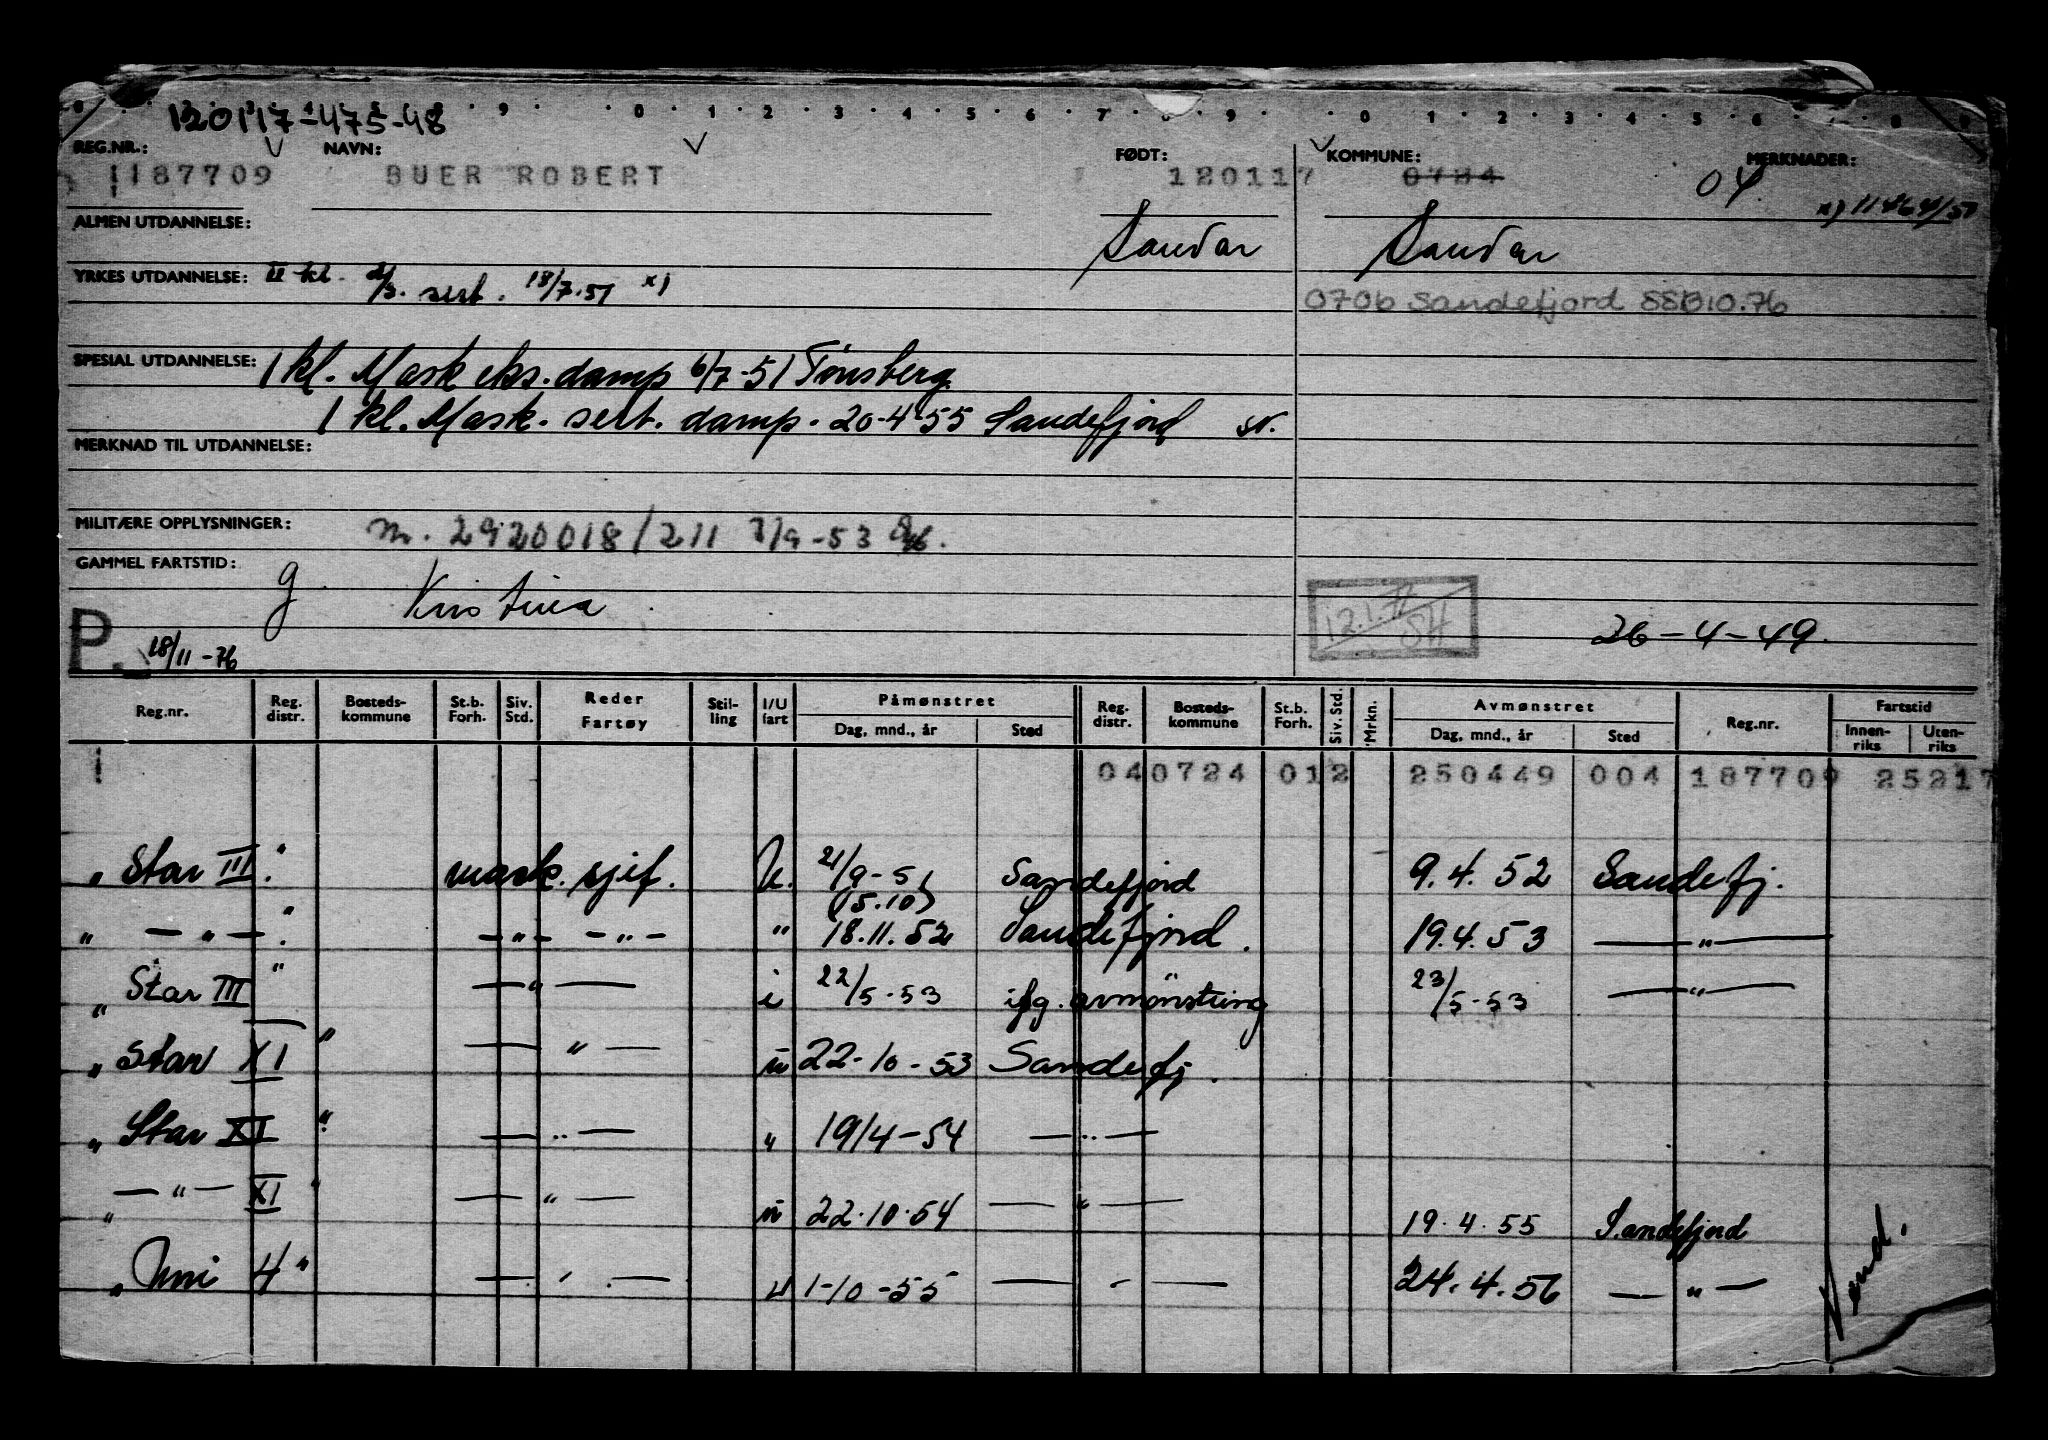 120117-475-48
REG.NR.: NAVN: FØDT: KOMMUNE: MERKNADER:
1187709 BUER ROBERT 120117 0724 04
x) 11464/51
ALMEN UTDANNELSE: Sandar Sandar
YRKES UTDANNELSE: II kl. sert. 18/7.51 x)
0706 Sandefjord SSB 10.76
SPESIAL UTDANNELSE: 1 kl. Mask eks. damp 6/7-51 Tønsberg
1 kl. Mask. sert. damp. 20-4-55 Sandefjord
MERKNAD TIL UTDANNELSE:
MILITÆRE OPPLYSNINGER: m. 2920018/211 7/9-53
GAMMEL FARTSTID: g Kristina
12.1.77 SH
26-4-49.
P. 18/11-76
Reg.nr. Reg. distr. Bosteds-kommune St.b. Forh. Siv. Std. Reder Fartøy Stil-ling I/U fart Påmønstret Dag, mnd., år Sted Reg. distr. Bosteds-kommune St.b. Forh. Siv. Std. Mrkn. Avmønstret Dag, mnd., år Sted Reg.nr. Fartstid Innen-riks Uten-riks
1 040724 012 250449 004 187709 25217
" Star III " mask. sjef. u. 21/9-51 (15.10) Sandefjord 9.4.52 Sandefj.
" — " — " — " — — " — " 18.11.52 Sandefjord. 19.4.53 — " —
" Star III " — " — i 22/5-53 ifg. avmønstring 23/5-53 — " —
" Star XI " — " — u 22-10-53 Sandefj.
" Star XI " — " — " 19/4-54 — " —
" — " — XI " — " — u 22.10.54 — " — 19.4.55 Sandefjord
" Uni 4 " — " — u 1-10-55 — " — 24.4.56 — " —
Vend.